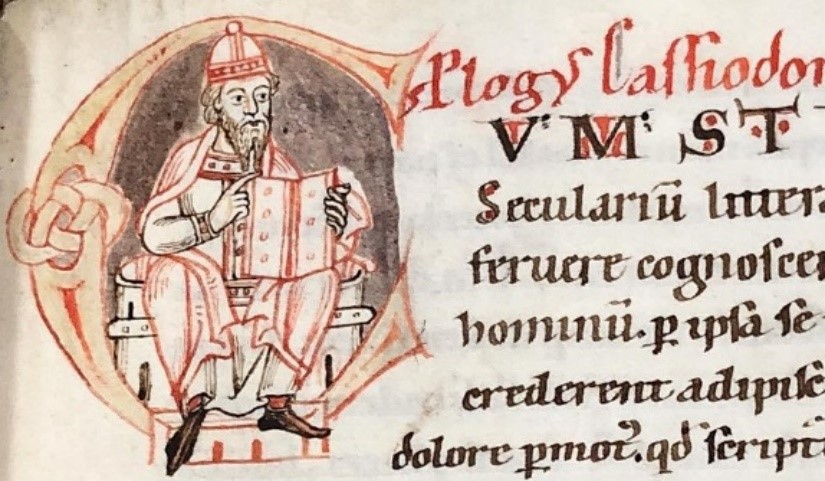 Plogꝰ Cassiodor
VM ST
Seculariū litter
feruere cognoscer
hominū. ꝑ ipsa se
crederent adipisc
dolore ꝑmotꝰ. qđ script